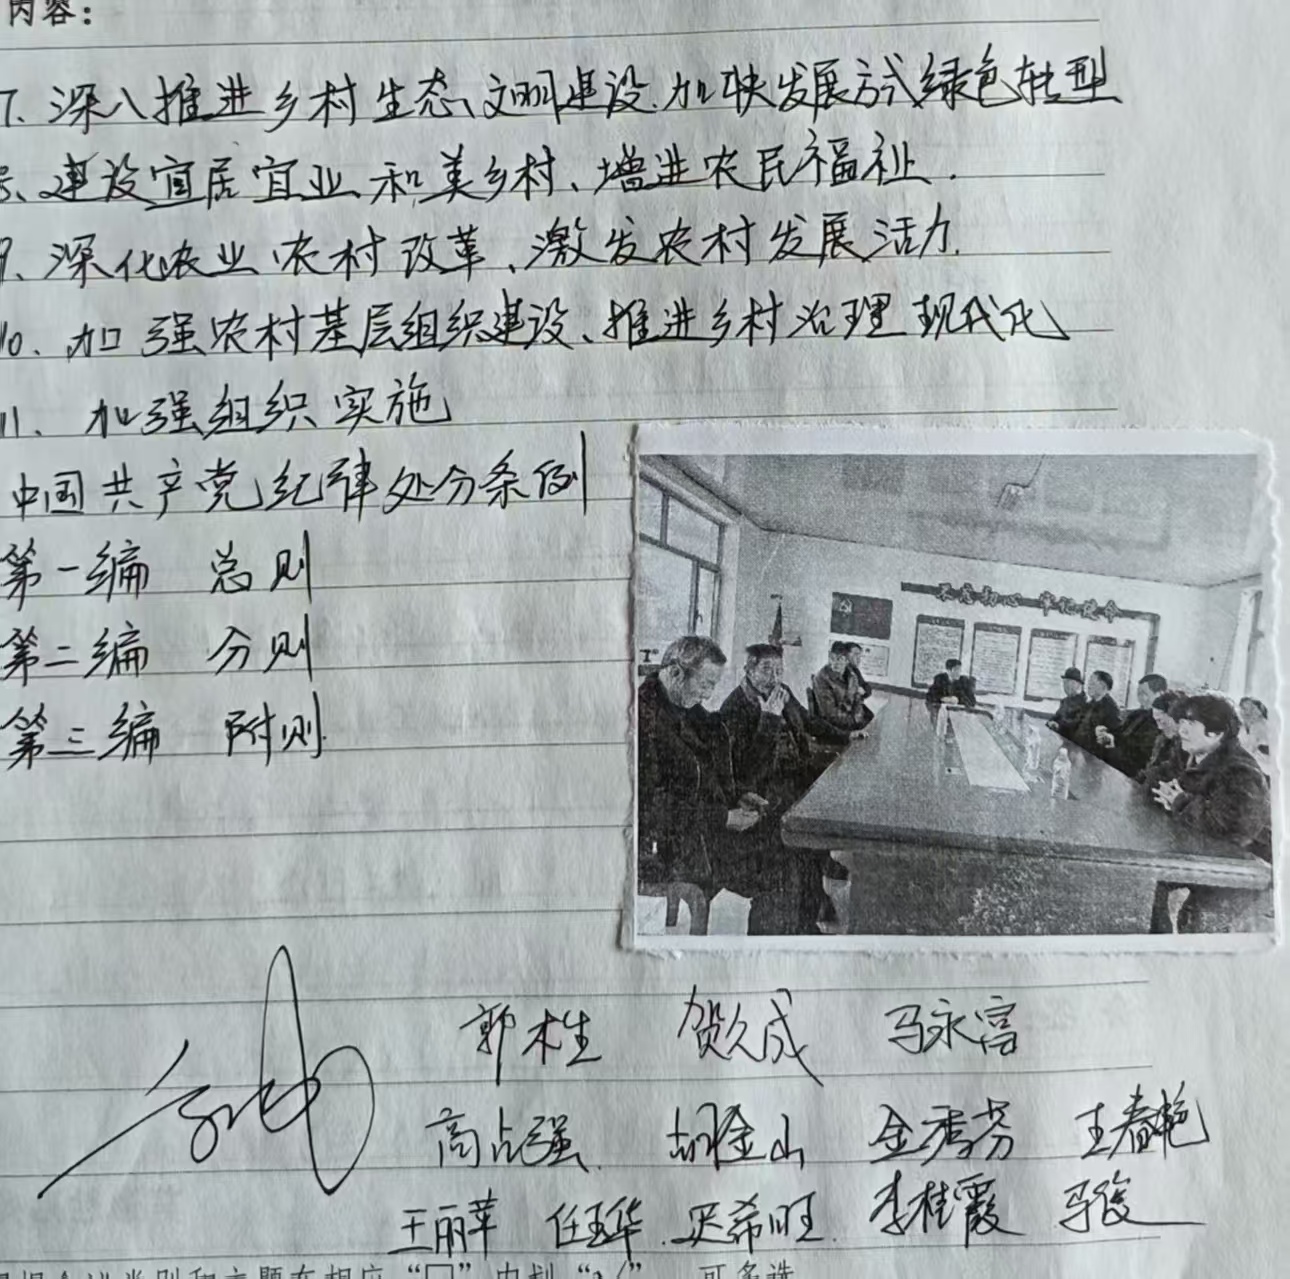 内容：
7、深入推进乡村生态文明建设、加快发展方式绿色转型
8、建设宜居宜业和美乡村、增进农民福祉.
9、深化农业农村改革、激发农村发展活力.
10、加强农村基层组织建设、推进乡村治理现代化
11、加强组织实施
中国共产党纪律处分条例
第一编 总则
第二编 分则
第三编 附则.
不忘初心 牢记使命
郭桂 贺久成 马永富
高占强 胡金山 金秀芬 王春艳
王丽苹 任玉华 希旺 李桂霞 马俊
“口”中划“√”，可多选